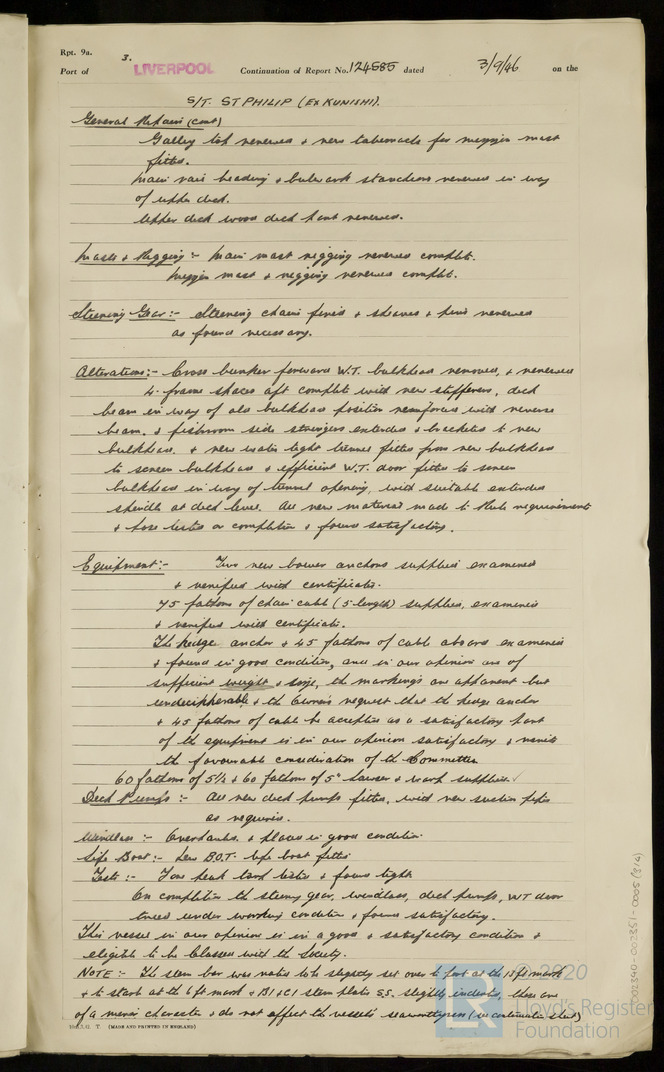 Rpt. 9a.
3.
Port of LIVERPOOL Continuation of Report No. 124585 dated 3/9/46 on the
S/T. ST PHILIP (EX KUNISHI).
General Repairs (cont)
Galley top renewed & new tabernacle for mizzen mast
fitted.
Main rail beading & bulwark stanchions renewed in way
of upper deck.
Upper deck wood deck part renewed.
Masts & Rigging :- Main mast rigging renewed complete.
Mizzen mast & rigging renewed complete.
Steering Gear :- Steering chains fitted & sheaves & pins renewed
as found necessary.
Alterations :- Cross bunker forward W.T. bulkhead removed, & renewed
4 frame spaces aft complete with new stiffeners, deck
beam in way of old bulkhead position reinforced with reverse
beam, & fishroom side stringers extended & bracketed to new
bulkhead, & new water tight tunnel fitted from new bulkhead
to screen bulkhead & efficient W.T. door fitted to screen
bulkhead in way of tunnel opening, with suitable extended
spindle at deck level. All new material made to Rule requirements
& hose tested on completion & found satisfactory.
Equipment :- Two new bower anchors supplied examined
& verified with certificate.
75 fathoms of chain cable (5 lengths) supplied, examined
& verified with certificate.
The kedge anchor & 45 fathoms of cable aboard examined
& found in good condition, and in our opinion are of
sufficient weight & size, the markings are apparent but
undecipherable & the Owner's request that the kedge anchor
& 45 fathoms of cable be accepted as a satisfactory part
of the equipment is in our opinion satisfactory & merits
the favourable consideration of the Committee
60 fathoms of 5 1/4 & 60 fathoms of 5" hawser & warp supplied. ✓
Deck Pumps :- All new deck pumps fitted, with new suction pipes
as required.
Windlass :- Overhauled & placed in good condition.
Life Boat :- New B.O.T. life boat fitted
Tests :- Fore peak tank tested & found tight
On completion the steering gear, windlass, deck pumps, WT door
tried under working condition & found satisfactory.
This vessel in our opinion is in a good & satisfactory condition &
eligible to be Classed with the Society.
NOTE :- The stem bar was noted to be slightly set over to port at the 13 ft mark
& to starb at the 6 ft mark & B1 & C1 stem plates S.S. slightly indented, these are
of a minor character & do not affect the vessel's seaworthyness (see continuation sheet)
(MADE AND PRINTED IN ENGLAND)
002340-002351-0005 (3/4)
© 2020
LR
Lloyd's Register
Foundation